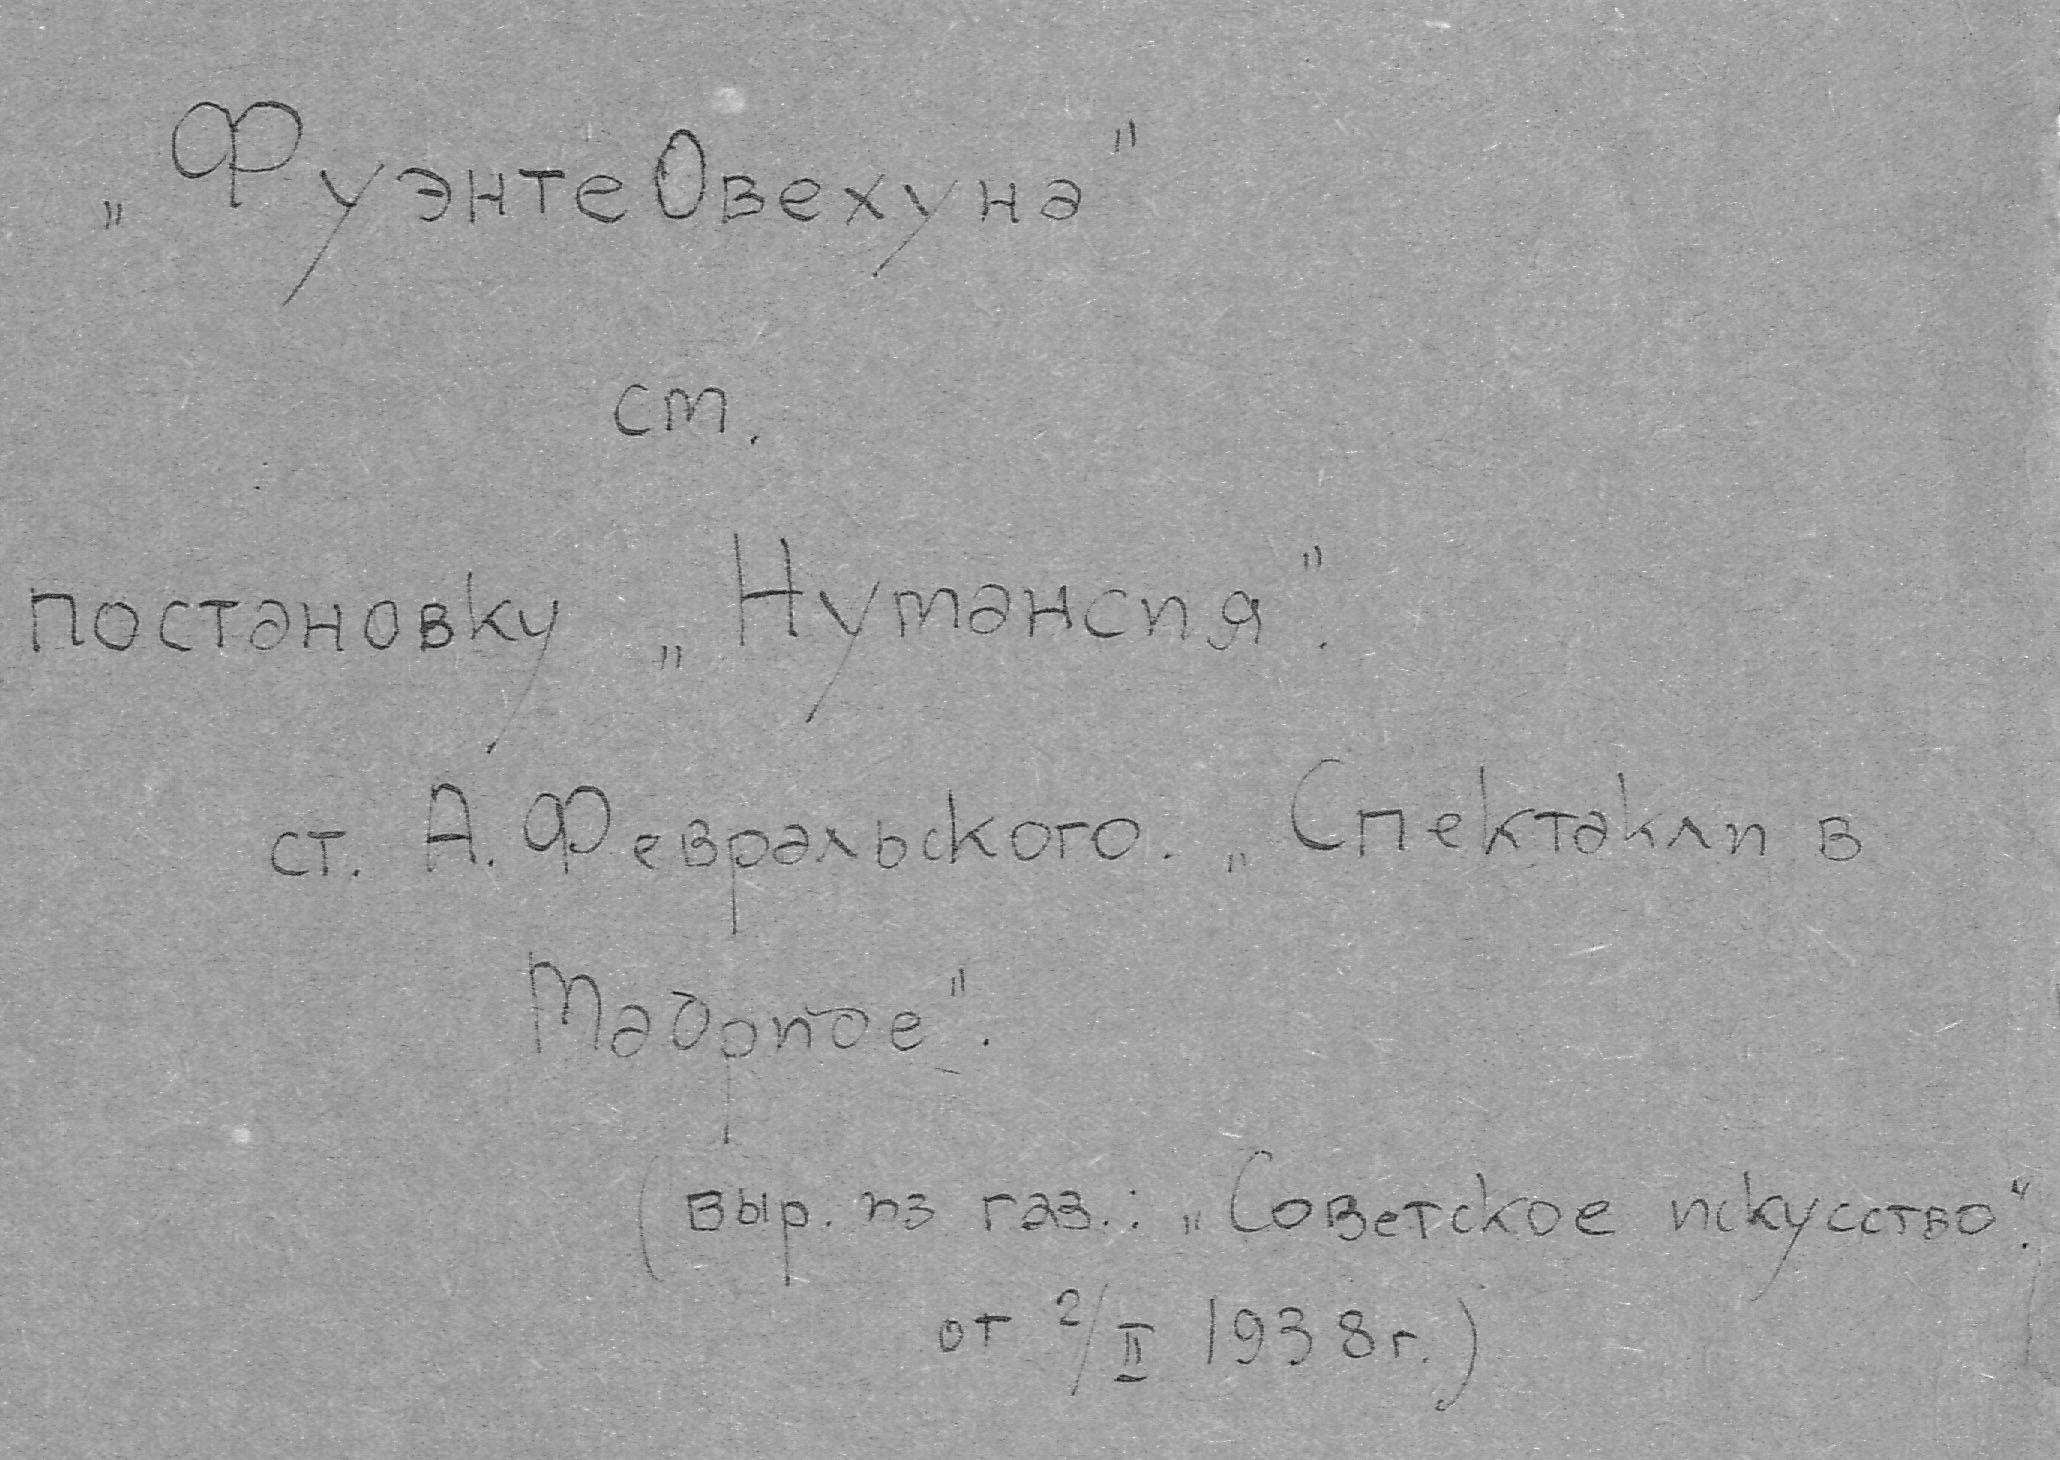 „ФуэнтеОвехуна"
см.
постановку „Нумансия".
ст. А. Февральского. „Спектакли в
Мадриде".
(выр. из газ.: „Советское искусство".
от 2/II 1938г.)